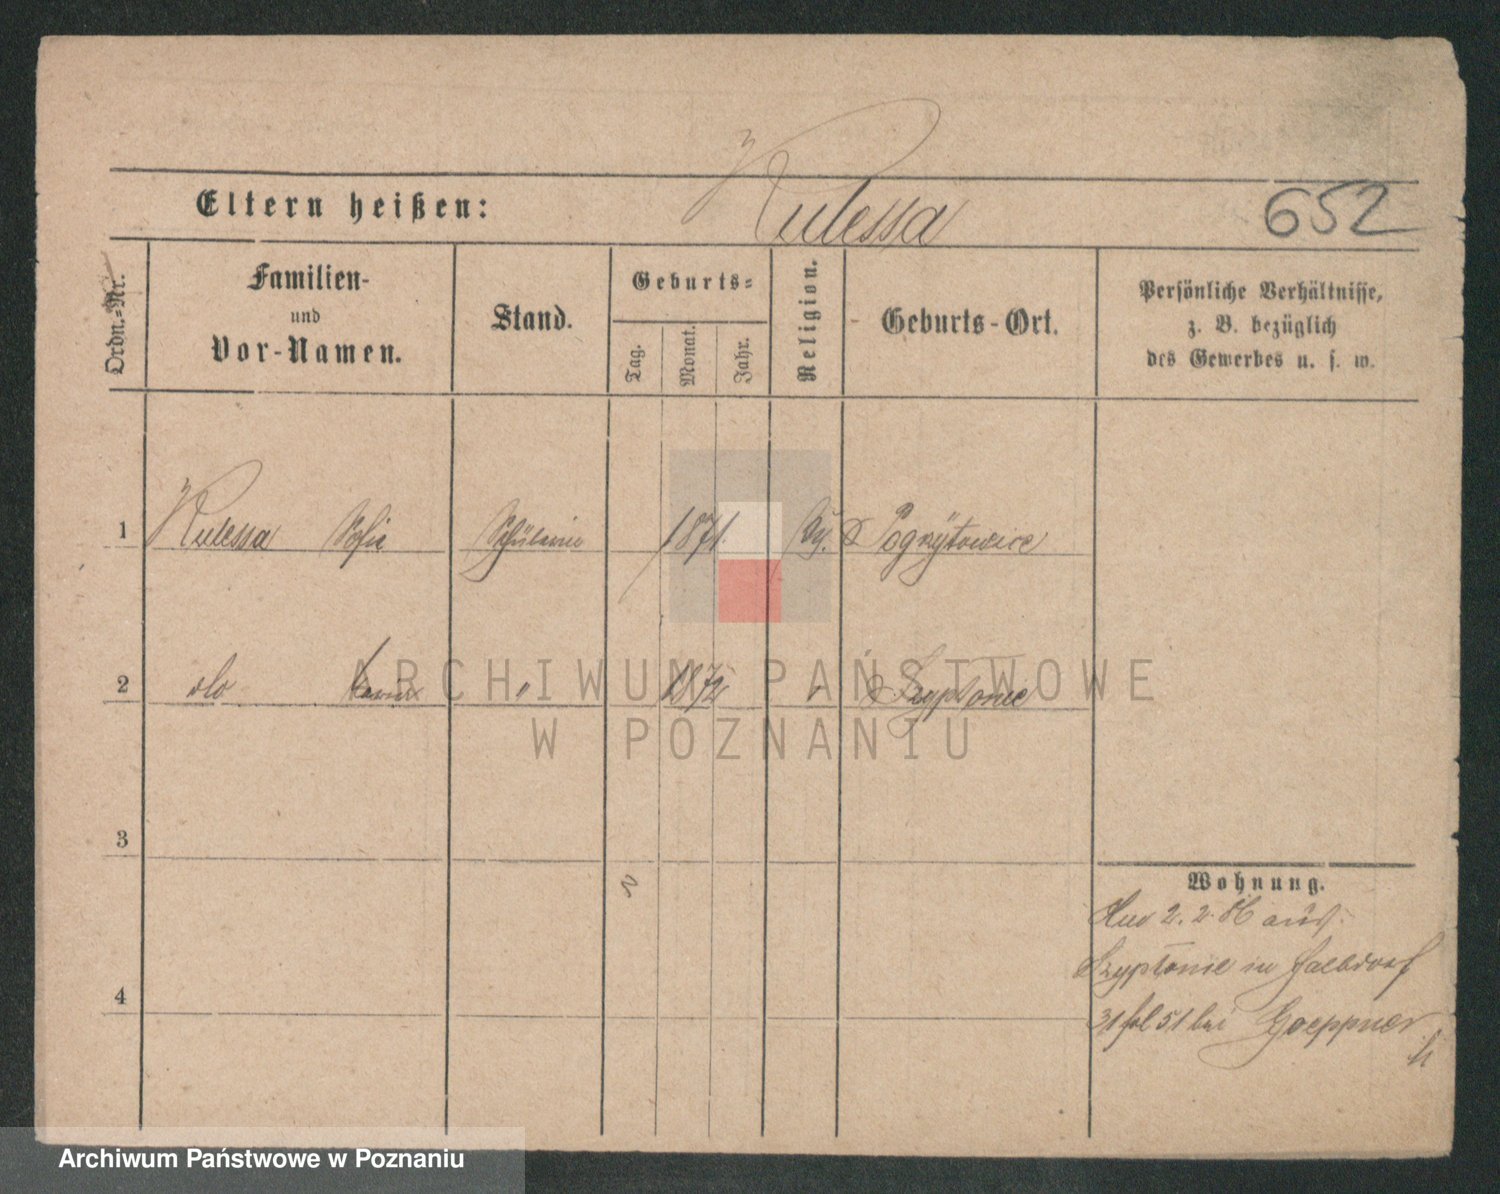 Kulessa
Eltern heißen:
652
Ordn.-Nr.
Familien-
und
Vor-Namen.
Stand.
Geburts-
Tag.
Monat.
Jahr.
Religion.
Geburts-Ort.
Persönliche Verhältnisse,
z. B. bezüglich
des Gewerbes u. s. w.
1 Kulessa Sofie Schülerin 1871
2 dto " 1872 "
3
4
Wohnung.
2. 2. 86 aus
in
31 fol 51 bei Goeppner
ARCHIWUM PAŃSTWOWE
W POZNANIU
Archiwum Państwowe w Poznaniu